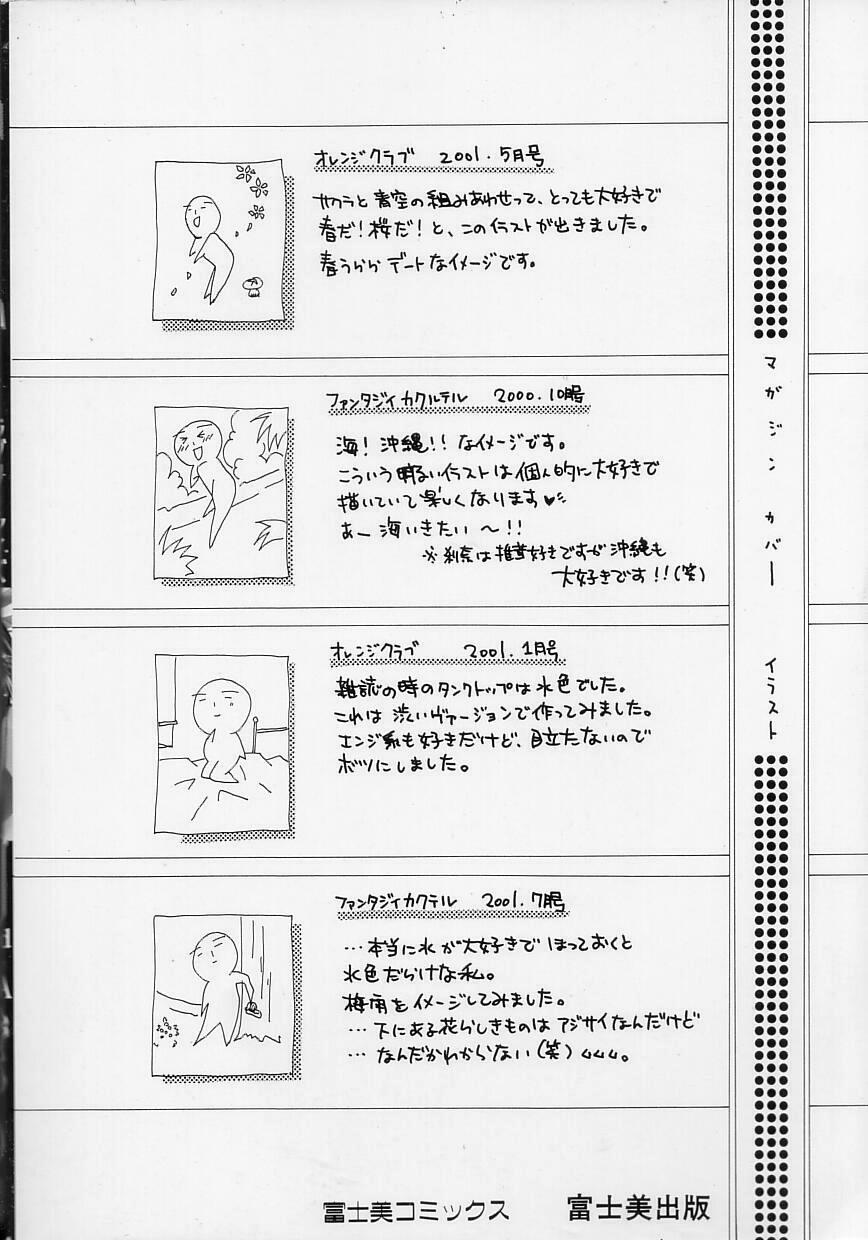 オレンジクラブ 2001.5月号
サクラと青空の組みあわせって、とっても大好きで
春だ！桜だ！と、このイラストが出きました。
春うららデートなイメージです。
ファンタジィカクルテル 2000.10月号
海！沖縄！！なイメージです。
こういう明るいイラストは個人的に大好きで
描いていて楽しくなります♥
あー海いきたい〜！！
※刹奈は推茸好きですが沖縄も
大好きです！！（笑）
オレンジクラブ 2001.1月号
雑誌の時のタンクトップは水色でした。
これは渋いヴァージョンで作ってみました。
エンジ系も好きだけど、目立たないので
ボツにしました。
ファンタジィカクテル 2001.7月号
…本当に水が大好きでほっておくと
水色だらけな私。
梅雨をイメージしてみました。
…下にある花らしきものはアジサイなんだけど
…なんだかわからない（笑）
マガジンカバー イラスト
富士美コミックス 富士美出版